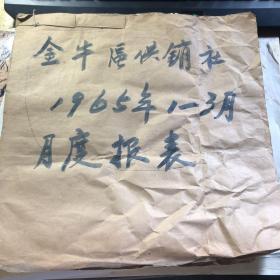 金牛区供销社
1965年1-3月
月度报表